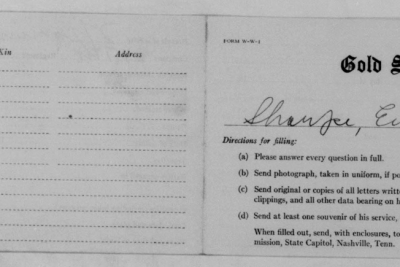 Kin Address
FORM W-W-1
Gold S
Directions for filling:
(a) Please answer every question in full.
(b) Send photograph, taken in uniform, if po
(c) Send original or copies of all letters writte
clippings, and all other data bearing on h
(d) Send at least one souvenir of his service,
When filled out, send, with enclosures, to
mission, State Capitol, Nashville, Tenn.